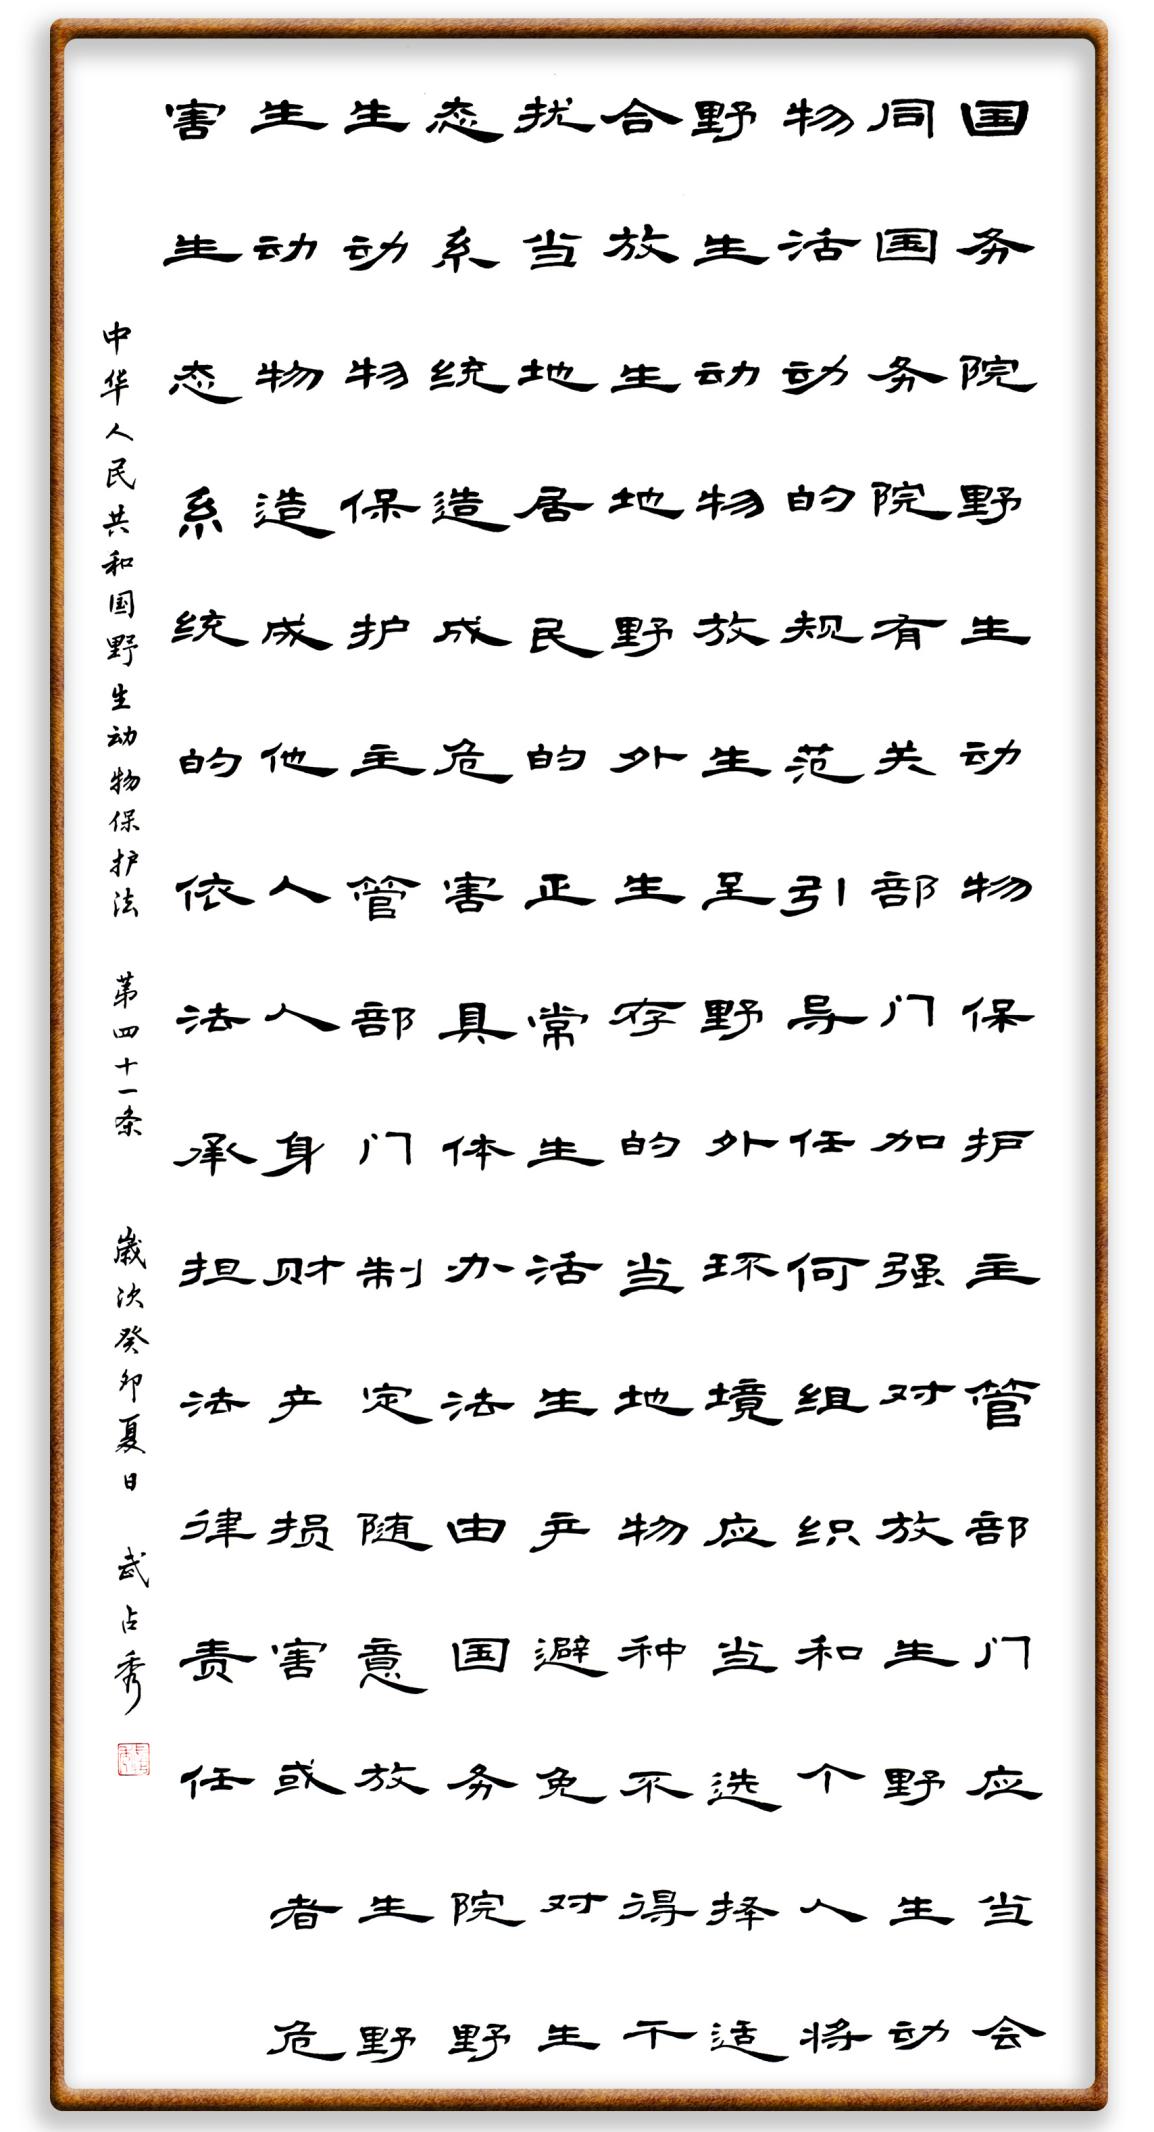 国务院野生动物保护主管部门应当会
同国务院有关部门加强对放生野生动
物活动的规范引导任何组织和个人将
野生动物放生至野外环境应当选择适
合放生地野外生存的当地物种不得干
扰当地居民的正常生活生产避免对生
态系统造成危害具体办法由国务院野
生动物保护主管部门制定随意放生野
生动物造成他人人身财产损害或者危
害生态系统的依法承担法律责任
中华人民共和国野生动物保护法 第四十一条 岁次癸卯夏日 武占秀